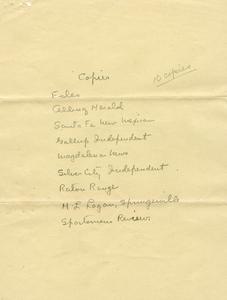 Copies
10 copies
Files
Albuq Herald
Santa Fe New Mexican
Gallup Independent
Magdalena News
Silver City Independent
Raton Range
H E Logan, Springerville
Sportsmens Review